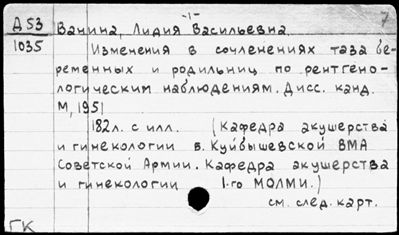 -1-
7
Д53 Ванина, Лидия Васильевна
1035
Изменения в сочленениях таза бе-
ременных и родильниц по рентгено-
логическим наблюдениям. Дисс. канд.
М, 1951
182л. с илл. (Кафедра акушерства
и гинекологии в. Куйбышевской ВМА
Советской Армии. Кафедра акушерства
и гинекологии 1-го МОЛМИ.)
см. след. карт.
ГК